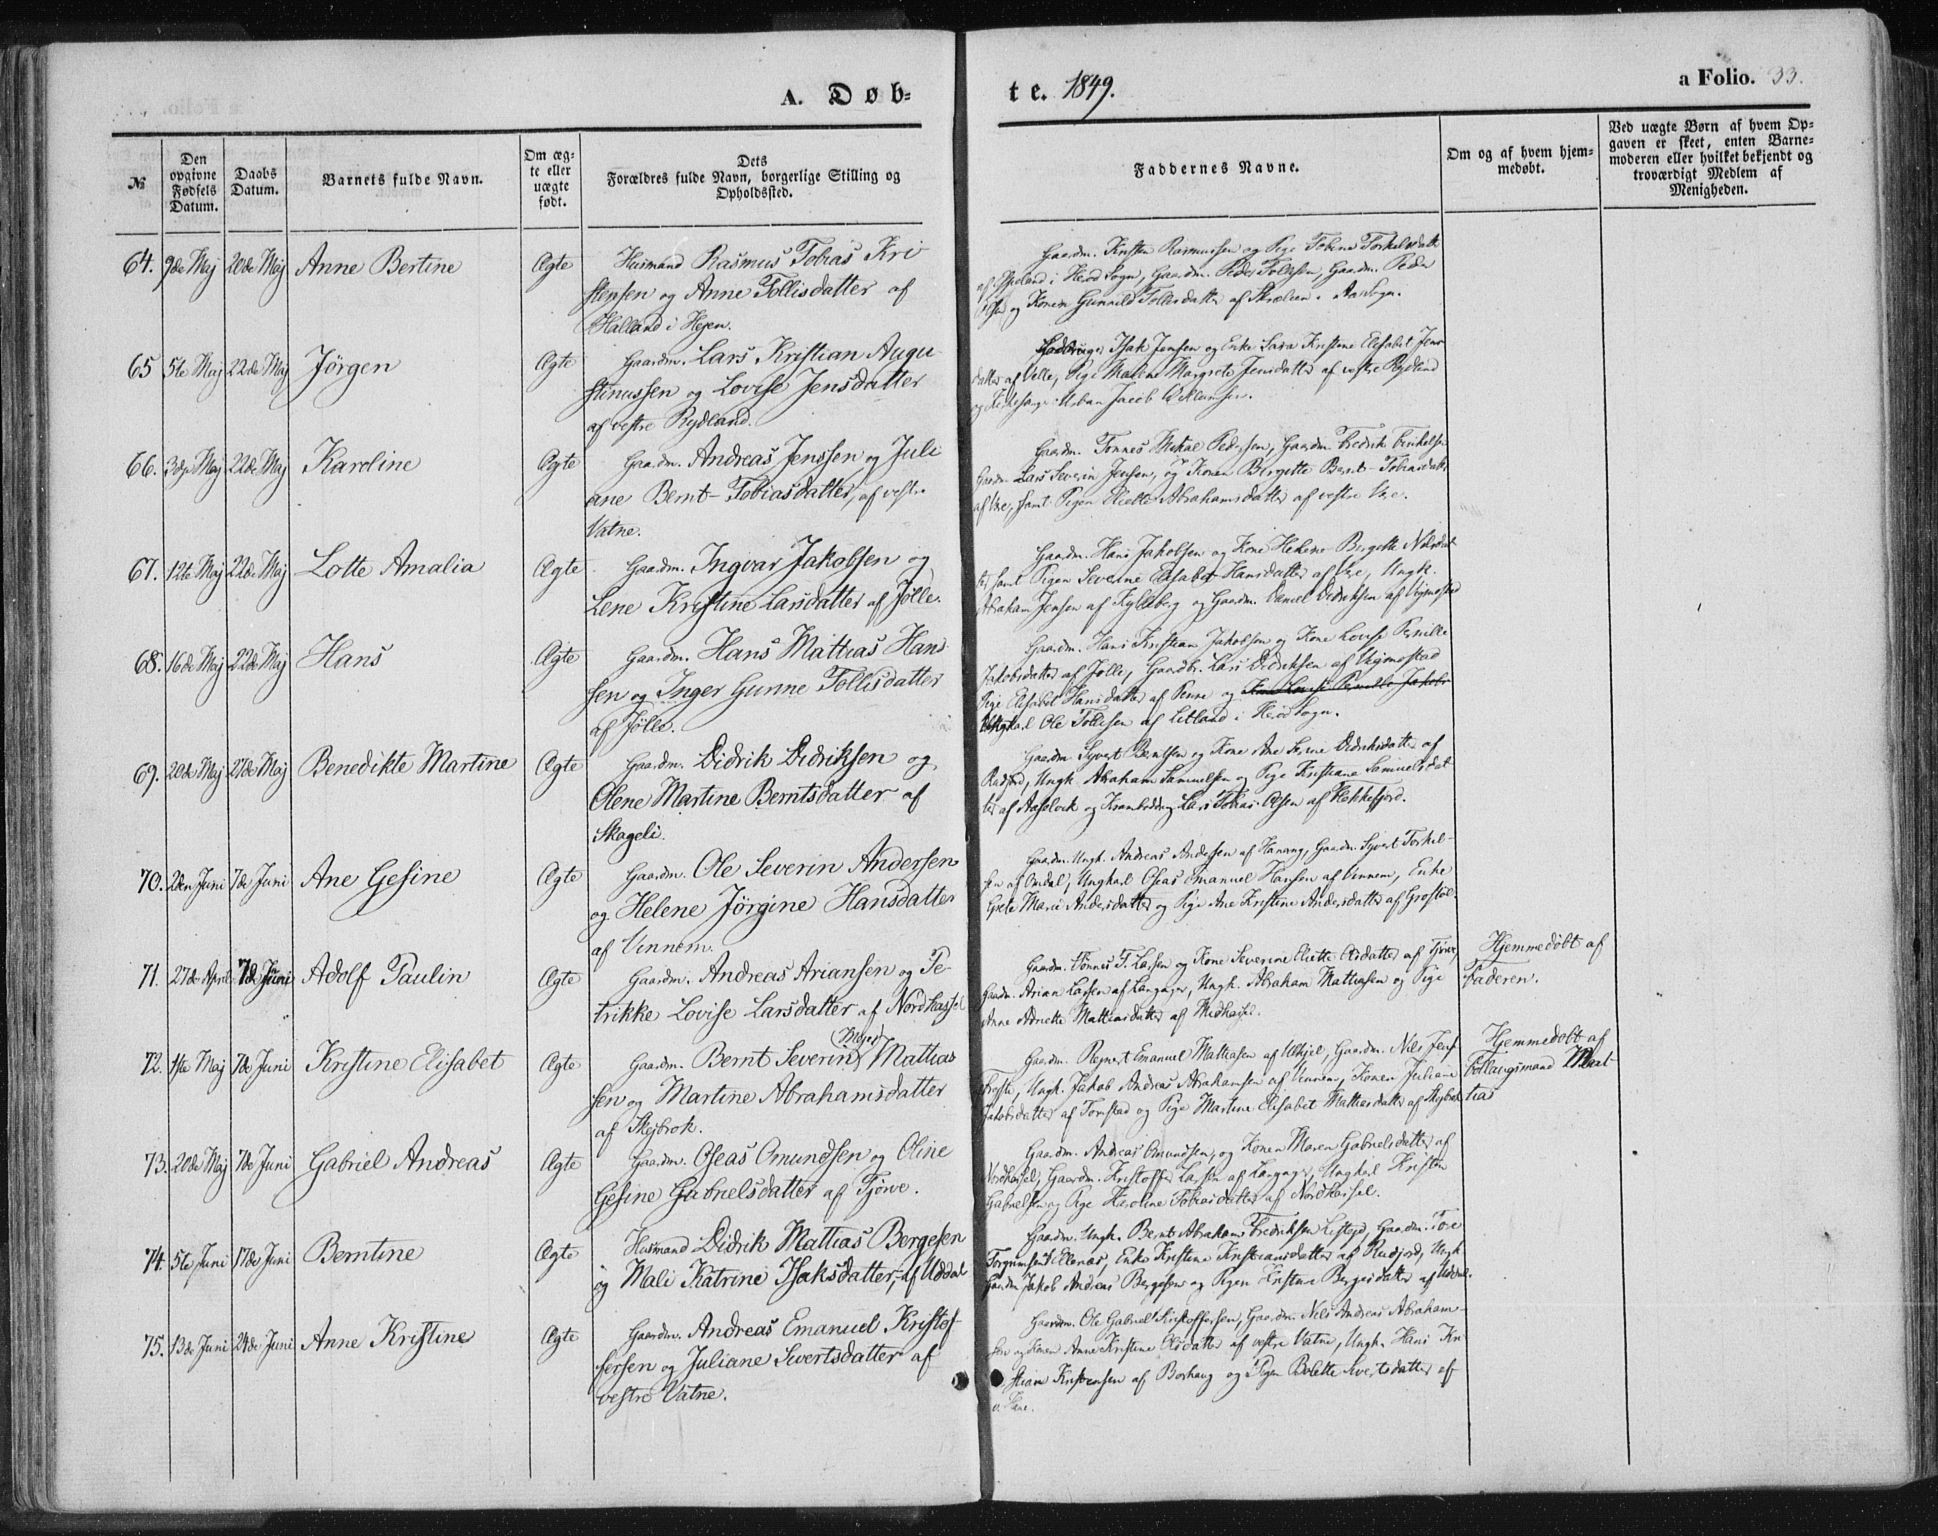 A. Døb-
te. 1849.
a Folio. 33.
№
Den opgivne Fødsels Datum.
Daabs Datum.
Barnets fulde Navn.
Om ægte eller uægte født.
Dets Forældres fulde Navn, borgerlige Stilling og Opholdssted.
Faddernes Navne.
Om og af hvem hjemmedøbt.
Ved uægte Børn af hvem Opgaven er skeet, enten Barnemoderen eller hvilket bekjendt og troværdigt Medlem af Menigheden.
64. 9de Maj 20de Maj Anne Bertine Ægte Husmand Rasmus Tobias Kri
stensen og Anne Tollisdatter af
Halland i
Gaardm. Kristen Rasmussen og Pige Tobine Torkelsdatter
i Herød Sogn, Gaardm. Peder Tollisen, Gaardm. Peder
og Konen Gunnild Tollisdatter af
65 5te Maj 22de Maj Jörgen Ægte Gaardm. Lars Kristian Augu-
stinussen og Lovise Jensdatter
af vestre Rydland.
Isak Jensen og Enke Sara Kristine Elisabet Jens
datter af Velle, Pige Malene Margrete Jensdatter af vestre Rydland
og Kirkesanger Urban Jacob
66. 3die Maj 22de Maj Karoline Ægte Gaardm. Andreas Jenssen og Juli
ane Bernt-Tobiasdatter, af vestre
Vatne.
Gaardm. Tönnes Mikal Pedersen, Gaardm. Fredrik
Gaardm. Lars Severin Jensen, og Konen Birgitte Bernt-Tobiasdatter
af Vre, samt Pigen Eliette Abrahamsdatter af vestre Vre.
67. 12te Maj 22de Maj Lotte Amalia Ægte Gaardm. Ingvar Jakobsen og
Lene Kristine Larsdatter af Jölle.
Gaardm. Hans Jakobsen og Kone Helene Bergitte Nilsdat
ter samt Pigen Severine Elisabet Hansdatter af Vre, Ungk.
Abraham Jensen af og Gaardm. Daniel Didriksen af Vigmostad
68. 16de Maj 22de Maj Hans Ægte Gaardm. Hans Mattias Han
sen og Inger Gunne Tollisdatter
af Jölle.
Gaardm. Hans Kristian Jakobsen og Kone Lovise Pernille
Jakobsdatter af Jölle, Gaardbr. Lars Didriksen af Vigmostad
Pige Elisabet Hansdatter af Penne og
Ungkarl Ole Tollisen af Letland i Herød Sogn.
69. 20de Maj 27de Maj Benedikte Martine Ægte Gaardm. Didrik Didriksen og
Olene Martine Berntsdatter af
Skageli.
Gaardm. Syvert Berntsen og Kone Ane Serine Didriksdatter af
Rudjord, Ungk. Abraham Samuelsen og Pige Kristiane Samuelsdat
ter af og Lars Tobias Olsen af Flekkefjord.
70. 2den Juni 7de Juni Ane Gesine Ægte Gaardm. Ole Severin Andersen
og Helene Jörgine Hansdatter
af Vinnem.
Gaardm. Ungk. Andreas Andersen af Hanang, Gaardm. Syvert Torkel-
sen af Omdal, Ungkarl Oseas Emanuel Hansen af Vinnem, Enke
Grete Marie Andersdatter og Pige Ane Kristine Andersdatter af Grostöl.
71. 27de April 7de Juni Adolf Paulin Ægte Gaardm. Andreas Ariansen og Pe-
trikke Lovise Larsdatter af Nordhassel
Gaardm. Tönnes T. Larsen og Kone Severine Eliette Olsdatter af Tjörve,
Gaardm. Arian Larsen af Langager, Ungk. Abraham Mattiasen og Pige
Anne Mattiasdatter af Midhassel.
Hjemmedöbt af
Faderen.
72. 1ste Maj 7de Juni Kristine Elisabet Ægte Gaardm. Bernt Severin (Mejer) Mattias
sen og Martine Abrahamsdatter
af Skejbrok.
Gaardm. Regnert Emanuel Mattiasen af Ulhjel, Gaardm. Nils
Ungk. Jakob Andreas Abrahamsen af Vinnem, Konen Juliane
Jakobsdatter af Tomstad og Pige Martine Elisabet Mattiasdatter af Skejbrok
Hjemmedöbt af
Forlaugsmand Mat
tias
73. 20de Maj 7de Juni Gabriel Andreas Ægte Gaardm. Oseas Omundsen og Oline
Gesine Gabrielsdatter af Tjörve.
Gaardm. Andreas Omundsen, og Konen Maren Gabrielsdatter af
Nordhassel, Gaardm. Kristoffer Larsen af Langager, Ungkarl Kristen
Gabrielsen og Pige Karoline Tobiasdatter af Nordhassel.
74. 5te Juni 17de Juni Berntine Ægte Husmand Didrik Mattias Bergesen
og Mali Katrine Isaksdatter, af Uddal
Gaardm. Ungk. Bernt Abraham Fredriksen Listejd, Gaardm. Tore
Torgrimsen Ellenæs, Enke Kristine Kristiansdatter af Rudjord, Ungk.
Gaardm. Jakob Andreas Bergesen og Pigen Kristine Bergesdatter af Uddal.
75. 13de Juni 24de Juni Anne Kristine Ægte Gaardm. Andreas Emanuel Kristof
fersen og Juliane Sivertsdatter af
vestre Vatne.
Gaardm. Ole Gabriel Kristoffersen, Gaardm. Nils Andreas Abraham-
sen og Konen Anne Kristine Olsdatter af vestre Vatne, Ungk. Hans Kri
stian Kristensen af Borhaug og Pigen Bolette Sivertsdatter af